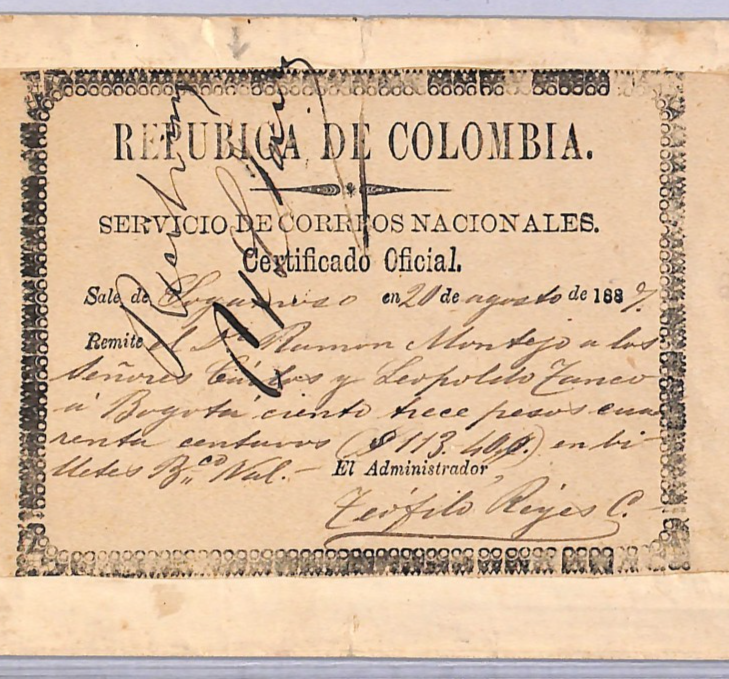 REPUBICA DE COLOMBIA.
SERVICIO DE CORREOS NACIONALES.
Certificado Oficial.
Sale de Sogamoso en 20 de agosto de 1887.
Remite el Dr Ramon Montejo a los
señores Cárlos y Leopoldo Tanco
á Bogotá ciento trece pesos cua
renta centavos ($113.40,) en bi
lletes Bco Nal.-
El Administrador,
Teófilo Reyes C.